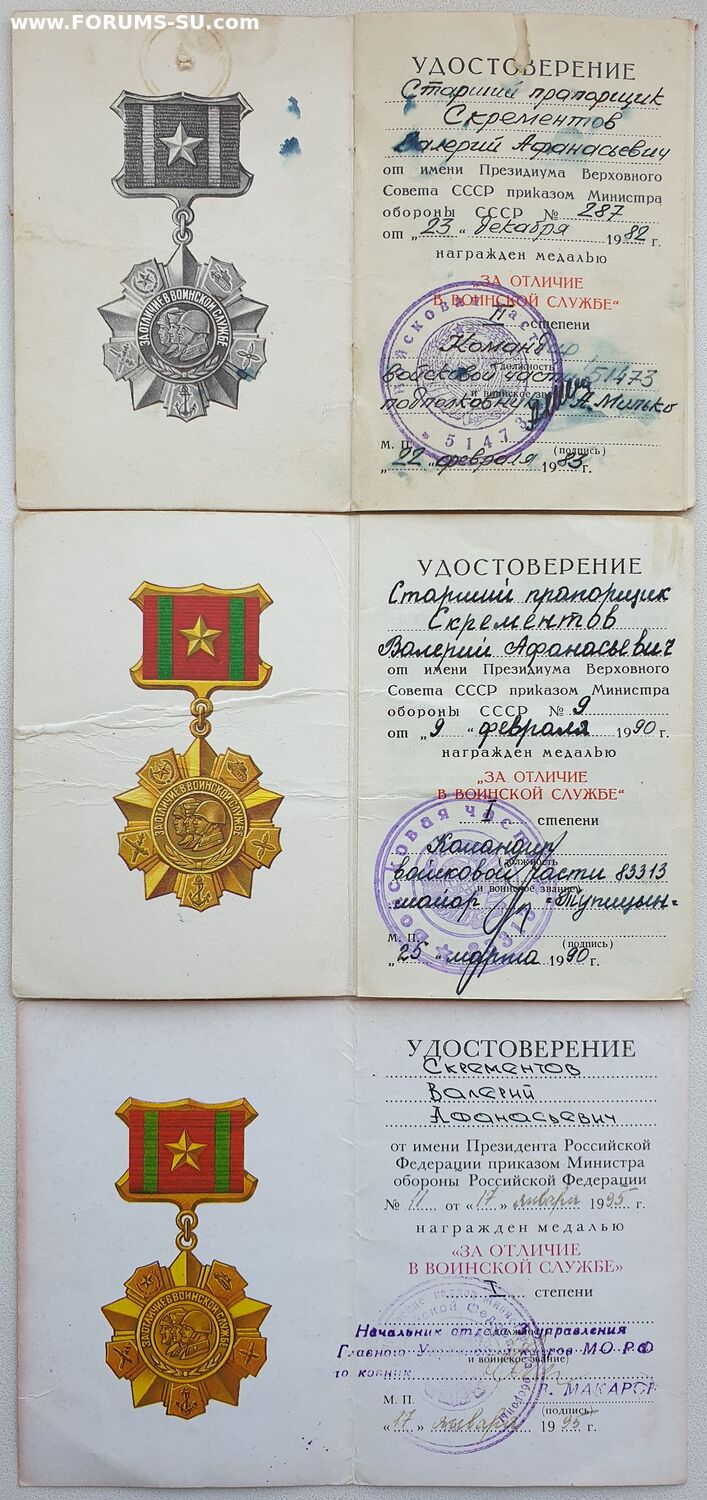 www.FORUMS-SU.com
ЗА ОТЛИЧИЕ В ВОИНСКОЙ СЛУЖБЕ
УДОСТОВЕРЕНИЕ
Старший прапорщик
Скрементов
Валерий Афанасьевич
от имени Президиума Верховного
Совета СССР приказом Министра
обороны СССР № 287
от „23" декабря 1982 г.
награжден медалью
„ЗА ОТЛИЧИЕ
В ВОИНСКОЙ СЛУЖБЕ"
II степени
Командир
(должность
войсковой части 51473
и воинское звание)
подполковник А. Милько
М. П. (подпись)
„22" февраля 1983 г.
51473
ЗА ОТЛИЧИЕ В ВОИНСКОЙ СЛУЖБЕ
УДОСТОВЕРЕНИЕ
Старший прапорщик
Скрементов
Валерий Афанасьевич
от имени Президиума Верховного
Совета СССР приказом Министра
обороны СССР № 9
от „9" февраля 1990 г.
награжден медалью
„ЗА ОТЛИЧИЕ
В ВОИНСКОЙ СЛУЖБЕ"
I степени
Командир
(должность
войсковой части 83313
и воинское звание)
майор =Тупицын=
М. П. (подпись)
„25" марта 1990 г.
Войсковая часть
83313
ЗА ОТЛИЧИЕ В ВОИНСКОЙ СЛУЖБЕ
УДОСТОВЕРЕНИЕ
Скрементов
Валерий
Афанасьевич
от имени Президента Российской
Федерации приказом Министра
обороны Российской Федерации
№ 11 от «17» января 1995 г.
награжден медалью
«ЗА ОТЛИЧИЕ
В ВОИНСКОЙ СЛУЖБЕ»
I степени
Начальник отдела 3 управления
(должность
Главного кадров МО РФ
и воинское звание)
М. П. (подпись)
«17» января 1995 г.